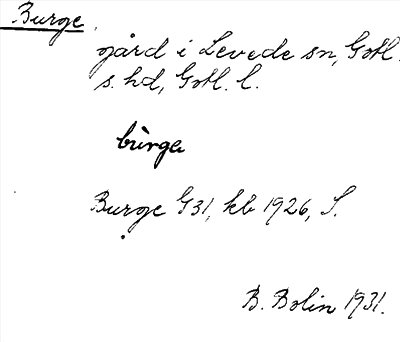 Burge
gård i Levede sn, Gotl.
s. hd, Gotl. l.
bùrge
Burge G31, kb 1926, S.
B. Bolin 1931.